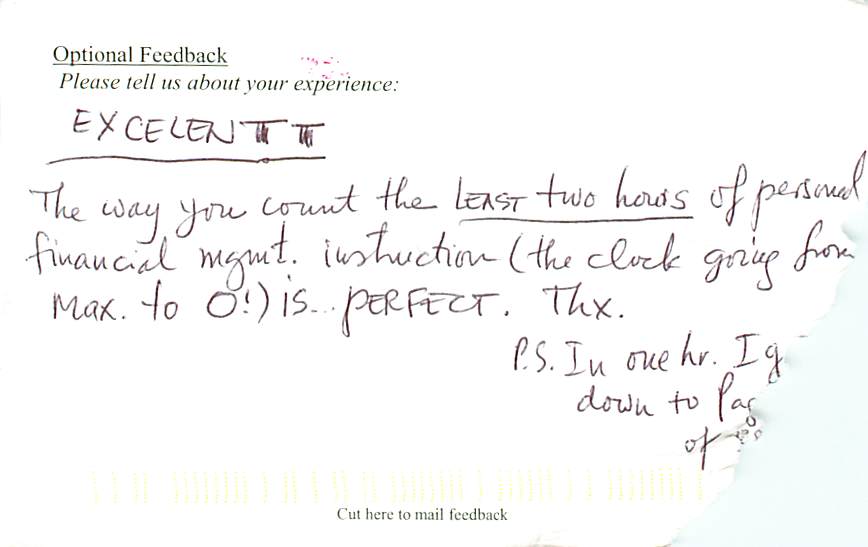 Optional Feedback
Please tell us about your experience:
EXCELENTT
The way you count the LEAST two hours of personal
financial mgmt. instruction (the clock going from
Max. to 0!) is... PERFECT. Thx.
P.S. In one hr. I g
down to Pag
of
Cut here to mail feedback